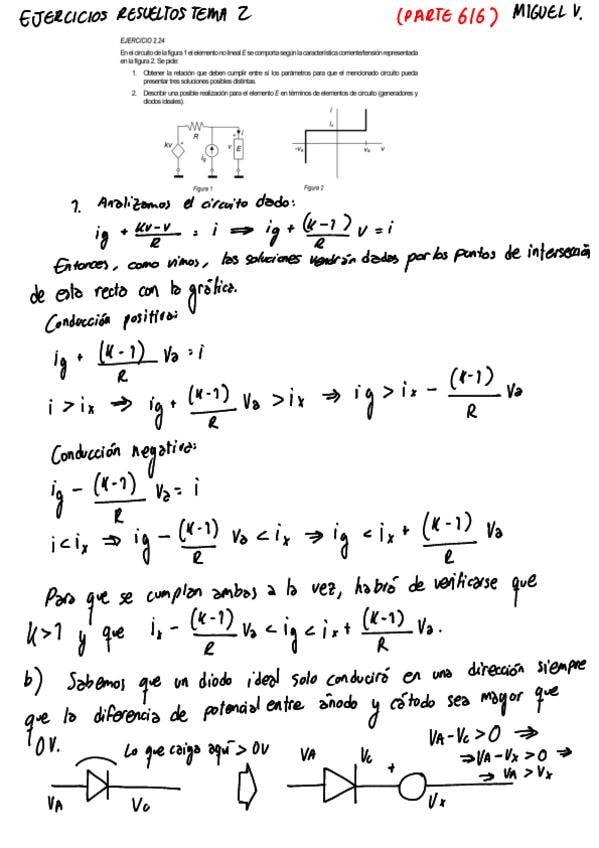 EJERCICIOS RESUELTOS TEMA 2 (PARTE 6|6) MIGUEL V.
EJERCICIO 2.24
En el circuito de la figura 1 el elemento no lineal E se comporta según la característica corriente/tensión representada
en la figura 2. Se pide:
1. Obtener la relación que deben cumplir entre sí los parámetros para que el mencionado circuito pueda
presentar tres soluciones posibles distintas.
2. Describir una posible realización para el elemento E en términos de elementos de circuito (generadores y
diodos ideales).
kv R ig v i E
i ix -va va v
Figura 1 Figura 2
1. Analizamos el circuito dado:
ig + (kv-v)/R = i ⇒ ig + (k-1)/R v = i
Entonces, como vimos, las soluciones vendrán dadas por los puntos de intersección
de esta recta con la gráfica.
Conducción positiva:
ig + (k-1)/R Va = i
i > ix ⇒ ig + (k-1)/R Va > ix ⇒ ig > ix - (k-1)/R Va
Conducción negativa:
ig - (k-1)/R Va = i
i < ix ⇒ ig - (k-1)/R Va < ix ⇒ ig < ix + (k-1)/R Va
Para que se cumplan ambas a la vez, habrá de verificarse que
k>1 y que ix - (k-1)/R Va < ig < ix + (k-1)/R Va.
b) Sabemos que un diodo ideal solo conducirá en una dirección siempre
que la diferencia de potencial entre ánodo y cátodo sea mayor que
0V.
Lo que caiga aquí > 0V
VA Vc
VA Vc + Vx
VA-Vc>0 ⇒
⇒ VA-Vx>0 ⇒
⇒ VA>Vx